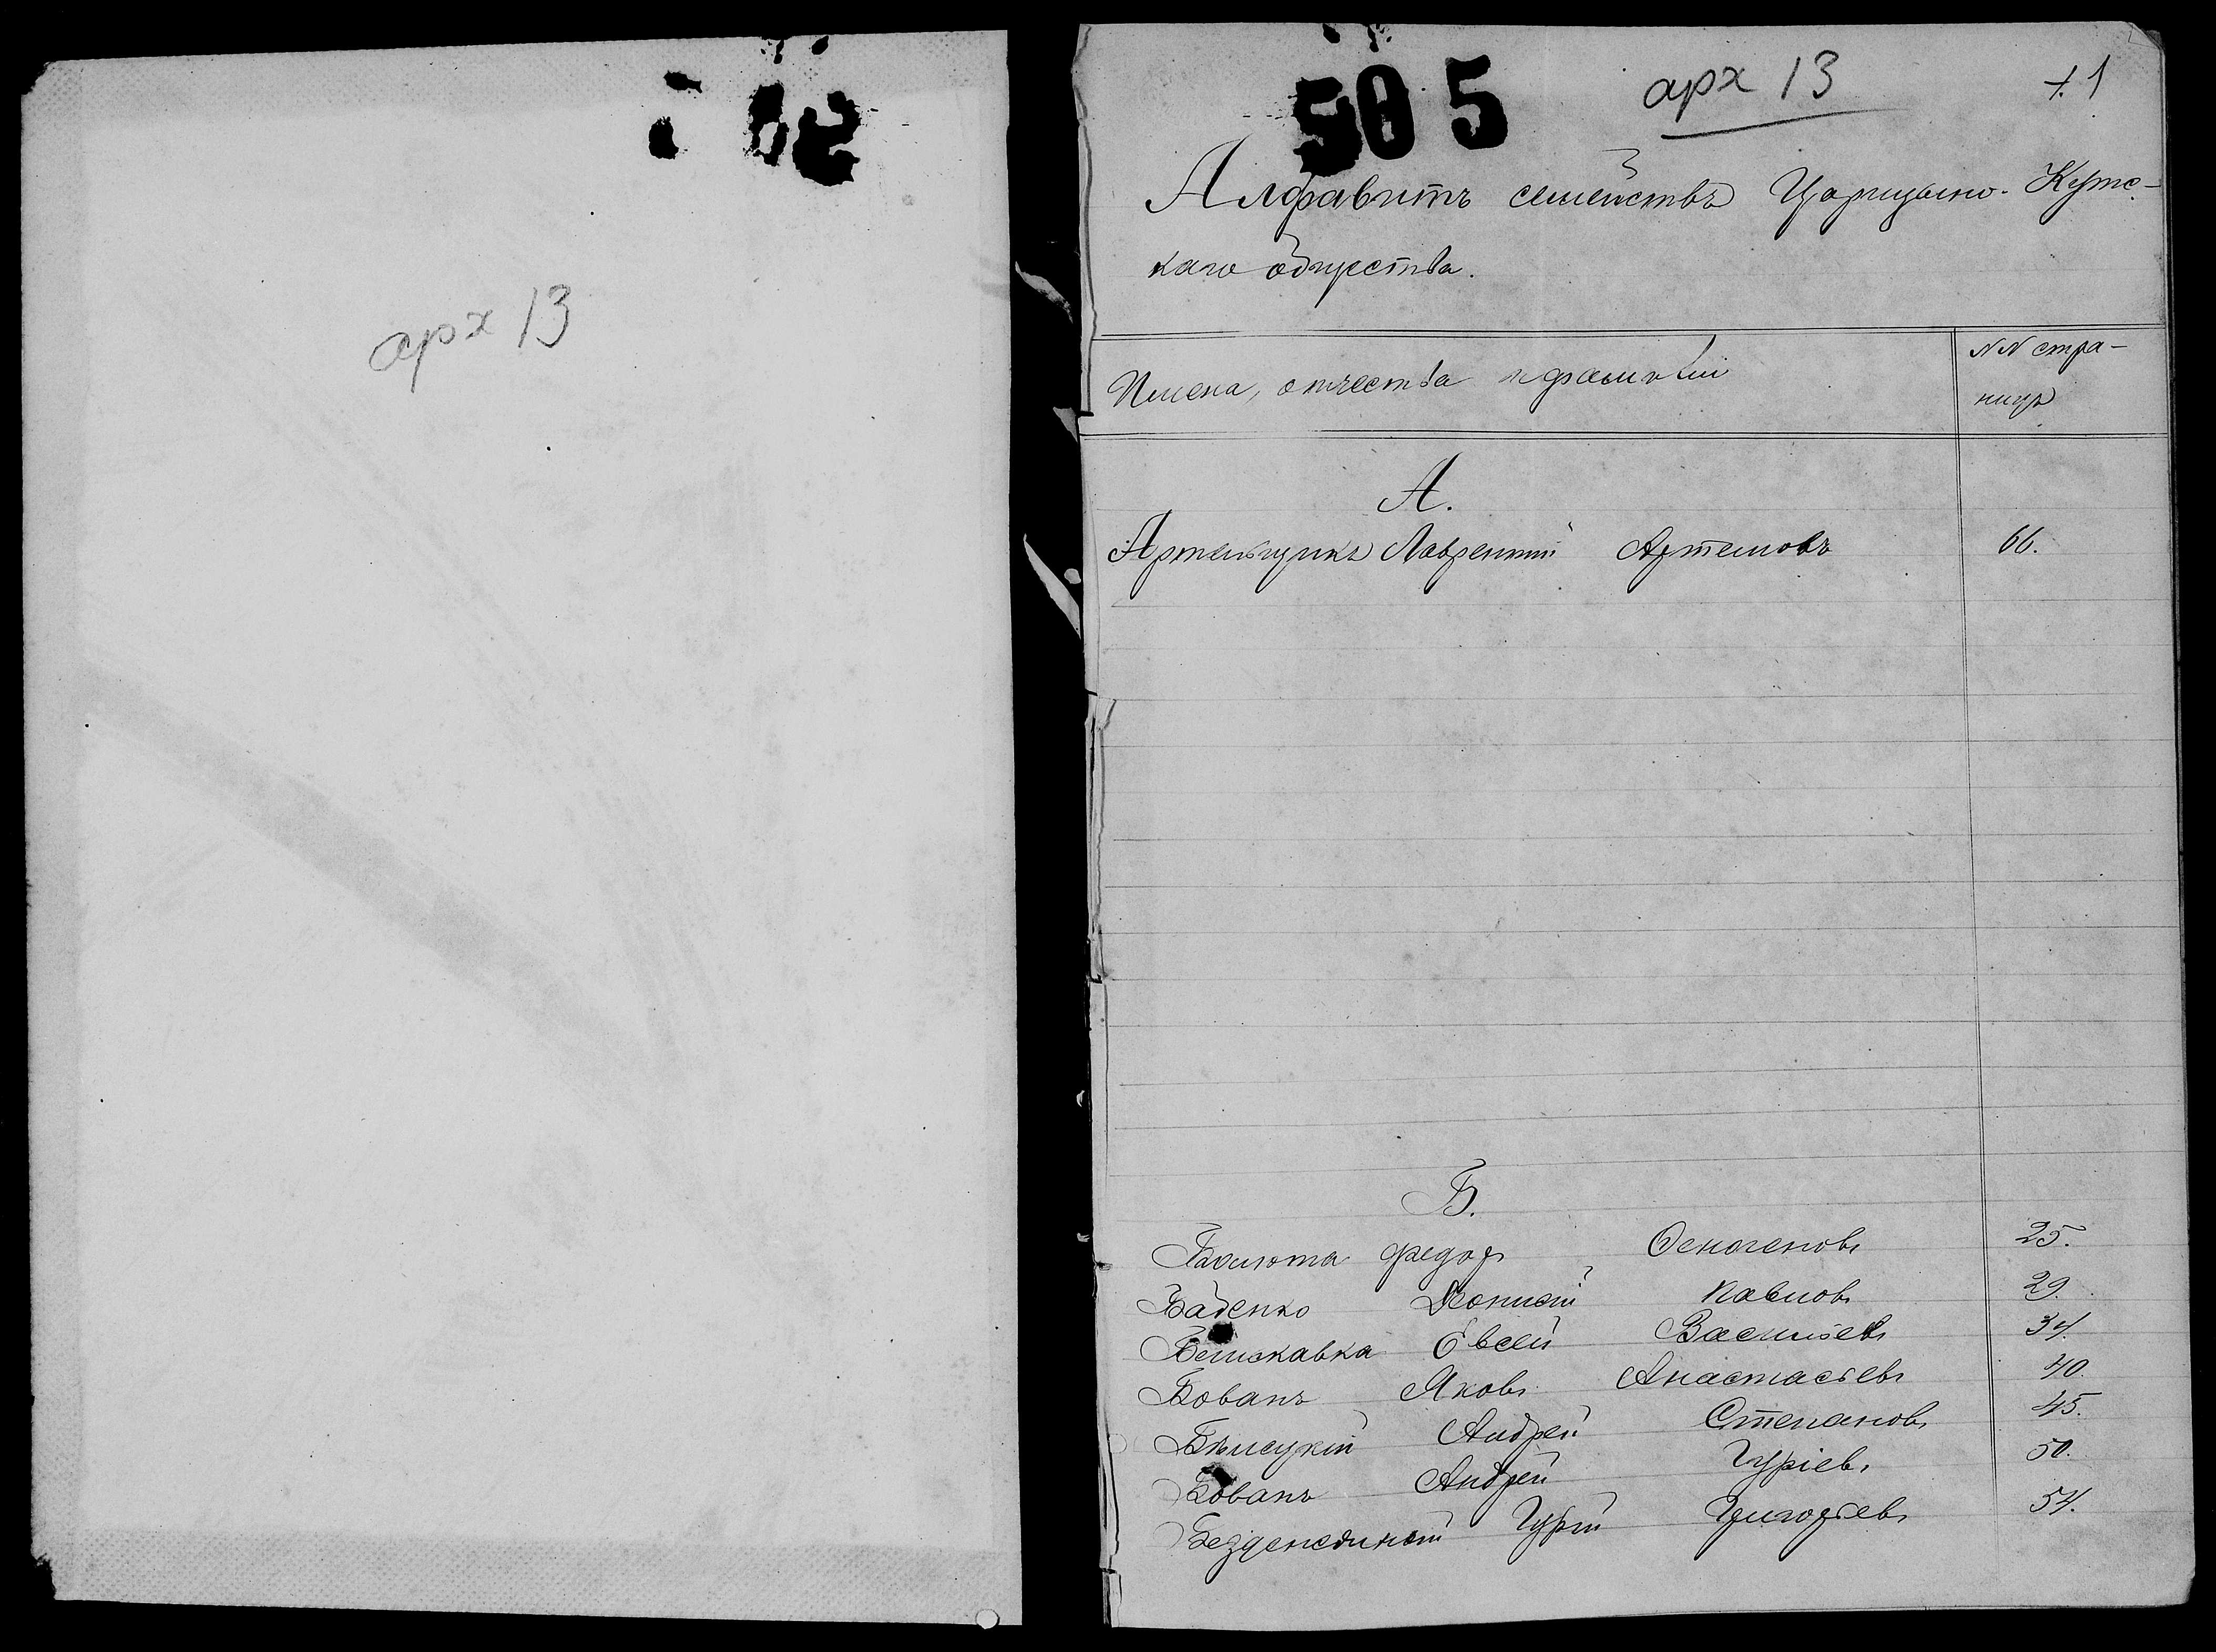 арх 13
505
арх 13
т. 1
Алфавитъ семействъ Царицыно-Кутс-
каго общества.
Имена, отчества и фамиліи
NN стра-
ницъ
А.
Артельщикъ Лаврентій Артемовъ 66.
Б.
Болюта Федоръ 25.
Баденко Павловъ 29.
Евсей Васильевъ 34.
Бованъ Яковъ Анастасьевъ 40.
Андрей Степановъ 45.
Бованъ Андрей Гуріевъ 50.
Гурій Григорьевъ 54.